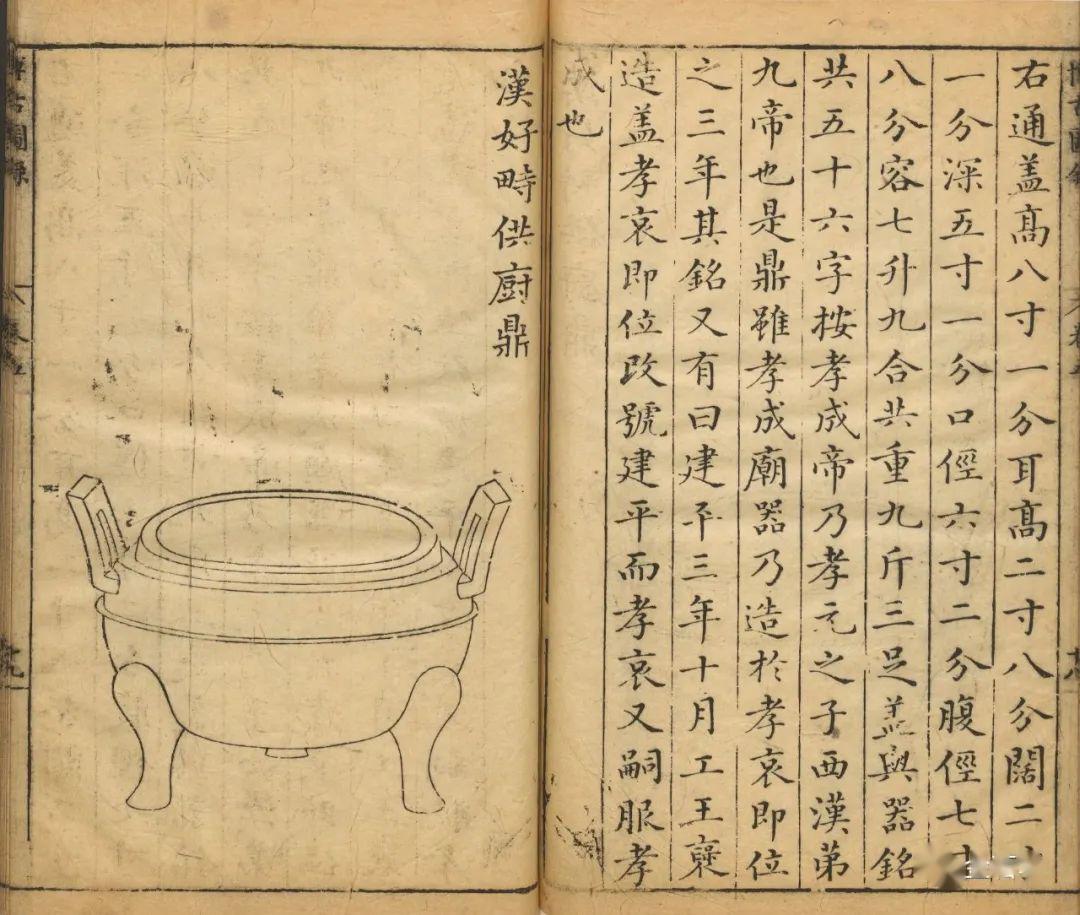 右通盖髙八寸一分耳髙二寸八分闊二寸
一分深五寸一分口徑六寸二分腹徑七寸
八分容七升九合共重九斤三足盖與器銘
共五十六字按孝成帝乃孝元之子西漢苐
九帝也是鼎雖孝成廟器乃造於孝哀即位
之三年其銘又有曰建平三年十月工王襃
造盖孝哀即位改號建平而孝哀又嗣服孝
成也
漢好畤供厨鼎
博古圖錄